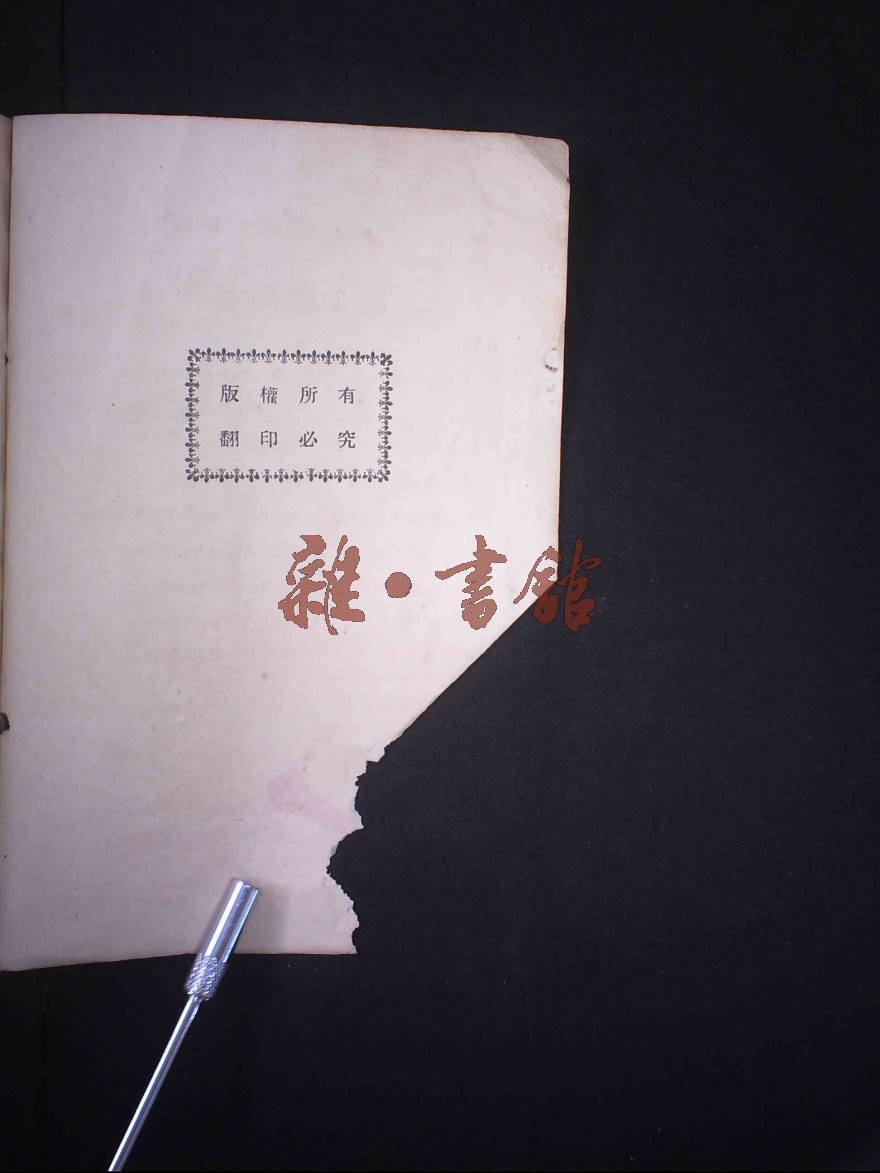 版權所有
翻印必究
雜·書館